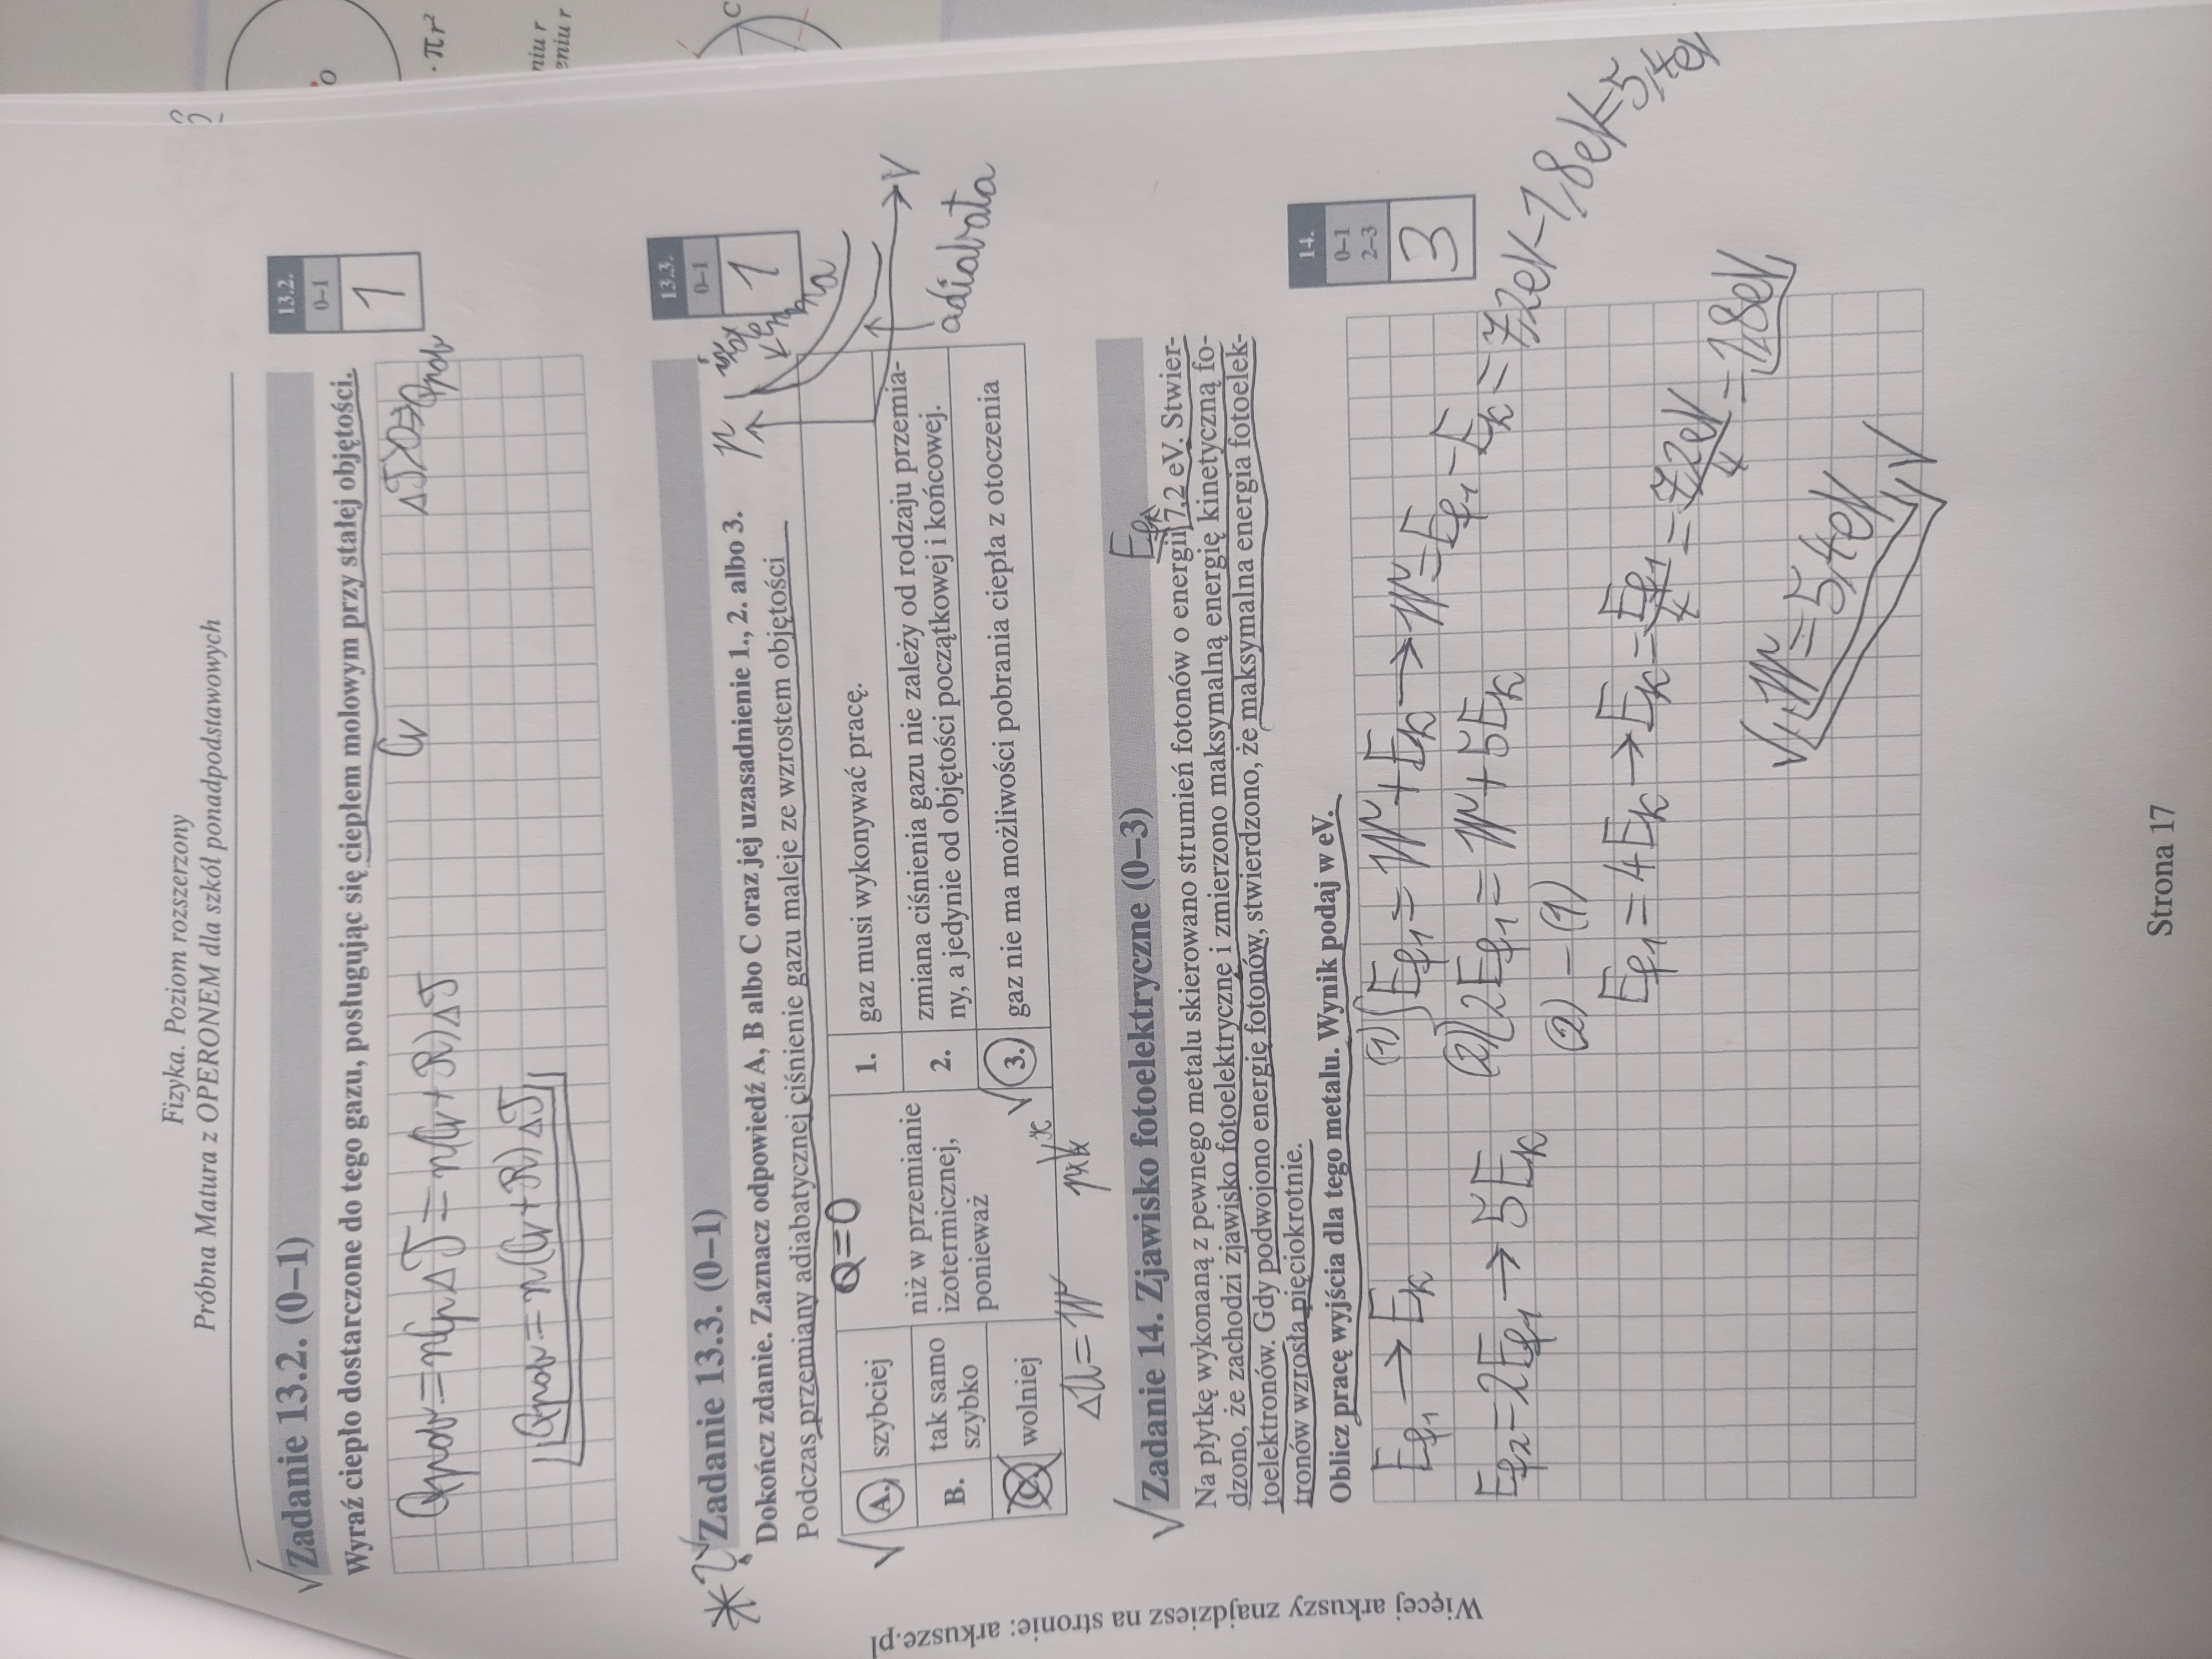 Fizyka. Poziom rozszerzony
Próbna Matura z OPERONEM dla szkół ponadpodstawowych
√ Zadanie 13.2. (0–1)
Wyraź ciepło dostarczone do tego gazu, posługując się ciepłem molowym przy stałej objętości.
13.2.
0–1
1
Cv
Qpobr = nCpΔT = n(Cv + R)ΔT
Qpobr = n(Cv + R)ΔT
√ Zadanie 13.3. (0–1)
Dokończ zdanie. Zaznacz odpowiedź A, B albo C oraz jej uzasadnienie 1., 2. albo 3.
Podczas przemiany adiabatycznej ciśnienie gazu maleje ze wzrostem objętości
13.3.
0–1
1
p
V
adiabata
Q=0
A. szybciej
B. tak samo szybko
C. wolniej
niż w przemianie
izotermicznej,
ponieważ
1. gaz musi wykonywać pracę.
2. zmiana ciśnienia gazu nie zależy od rodzaju przemia-
ny, a jedynie od objętości początkowej i końcowej.
√ 3. gaz nie ma możliwości pobrania ciepła z otoczenia
ΔU = W
√ Zadanie 14. Zjawisko fotoelektryczne (0–3)
Na płytkę wykonaną z pewnego metalu skierowano strumień fotonów o energii 7,2 eV. Stwier-
dzono, że zachodzi zjawisko fotoelektryczne i zmierzono maksymalną energię kinetyczną fo-
toelektronów. Gdy podwojono energię fotonów, stwierdzono, że maksymalna energia fotoelek-
tronów wzrosła pięciokrotnie.
Oblicz pracę wyjścia dla tego metalu. Wynik podaj w eV.
14.
0–1
2–3
3
Ef1 → Ek
Ef2 = 2Ef1 → 5Ek
(1) Ef1 = W + Ek → W = Ef1 – Ek = 7,2eV – 1,8eV = 5,4eV
(2) 2Ef1 = W + 5Ek
(2) – (1)
Ef1 = 4Ek → Ek = Ef1/4 = 7,2eV/4 = 1,8eV
√ W = 5,4eV √
Strona 17
Więcej arkuszy znajdziesz na stronie: arkusze.pl
· πr²